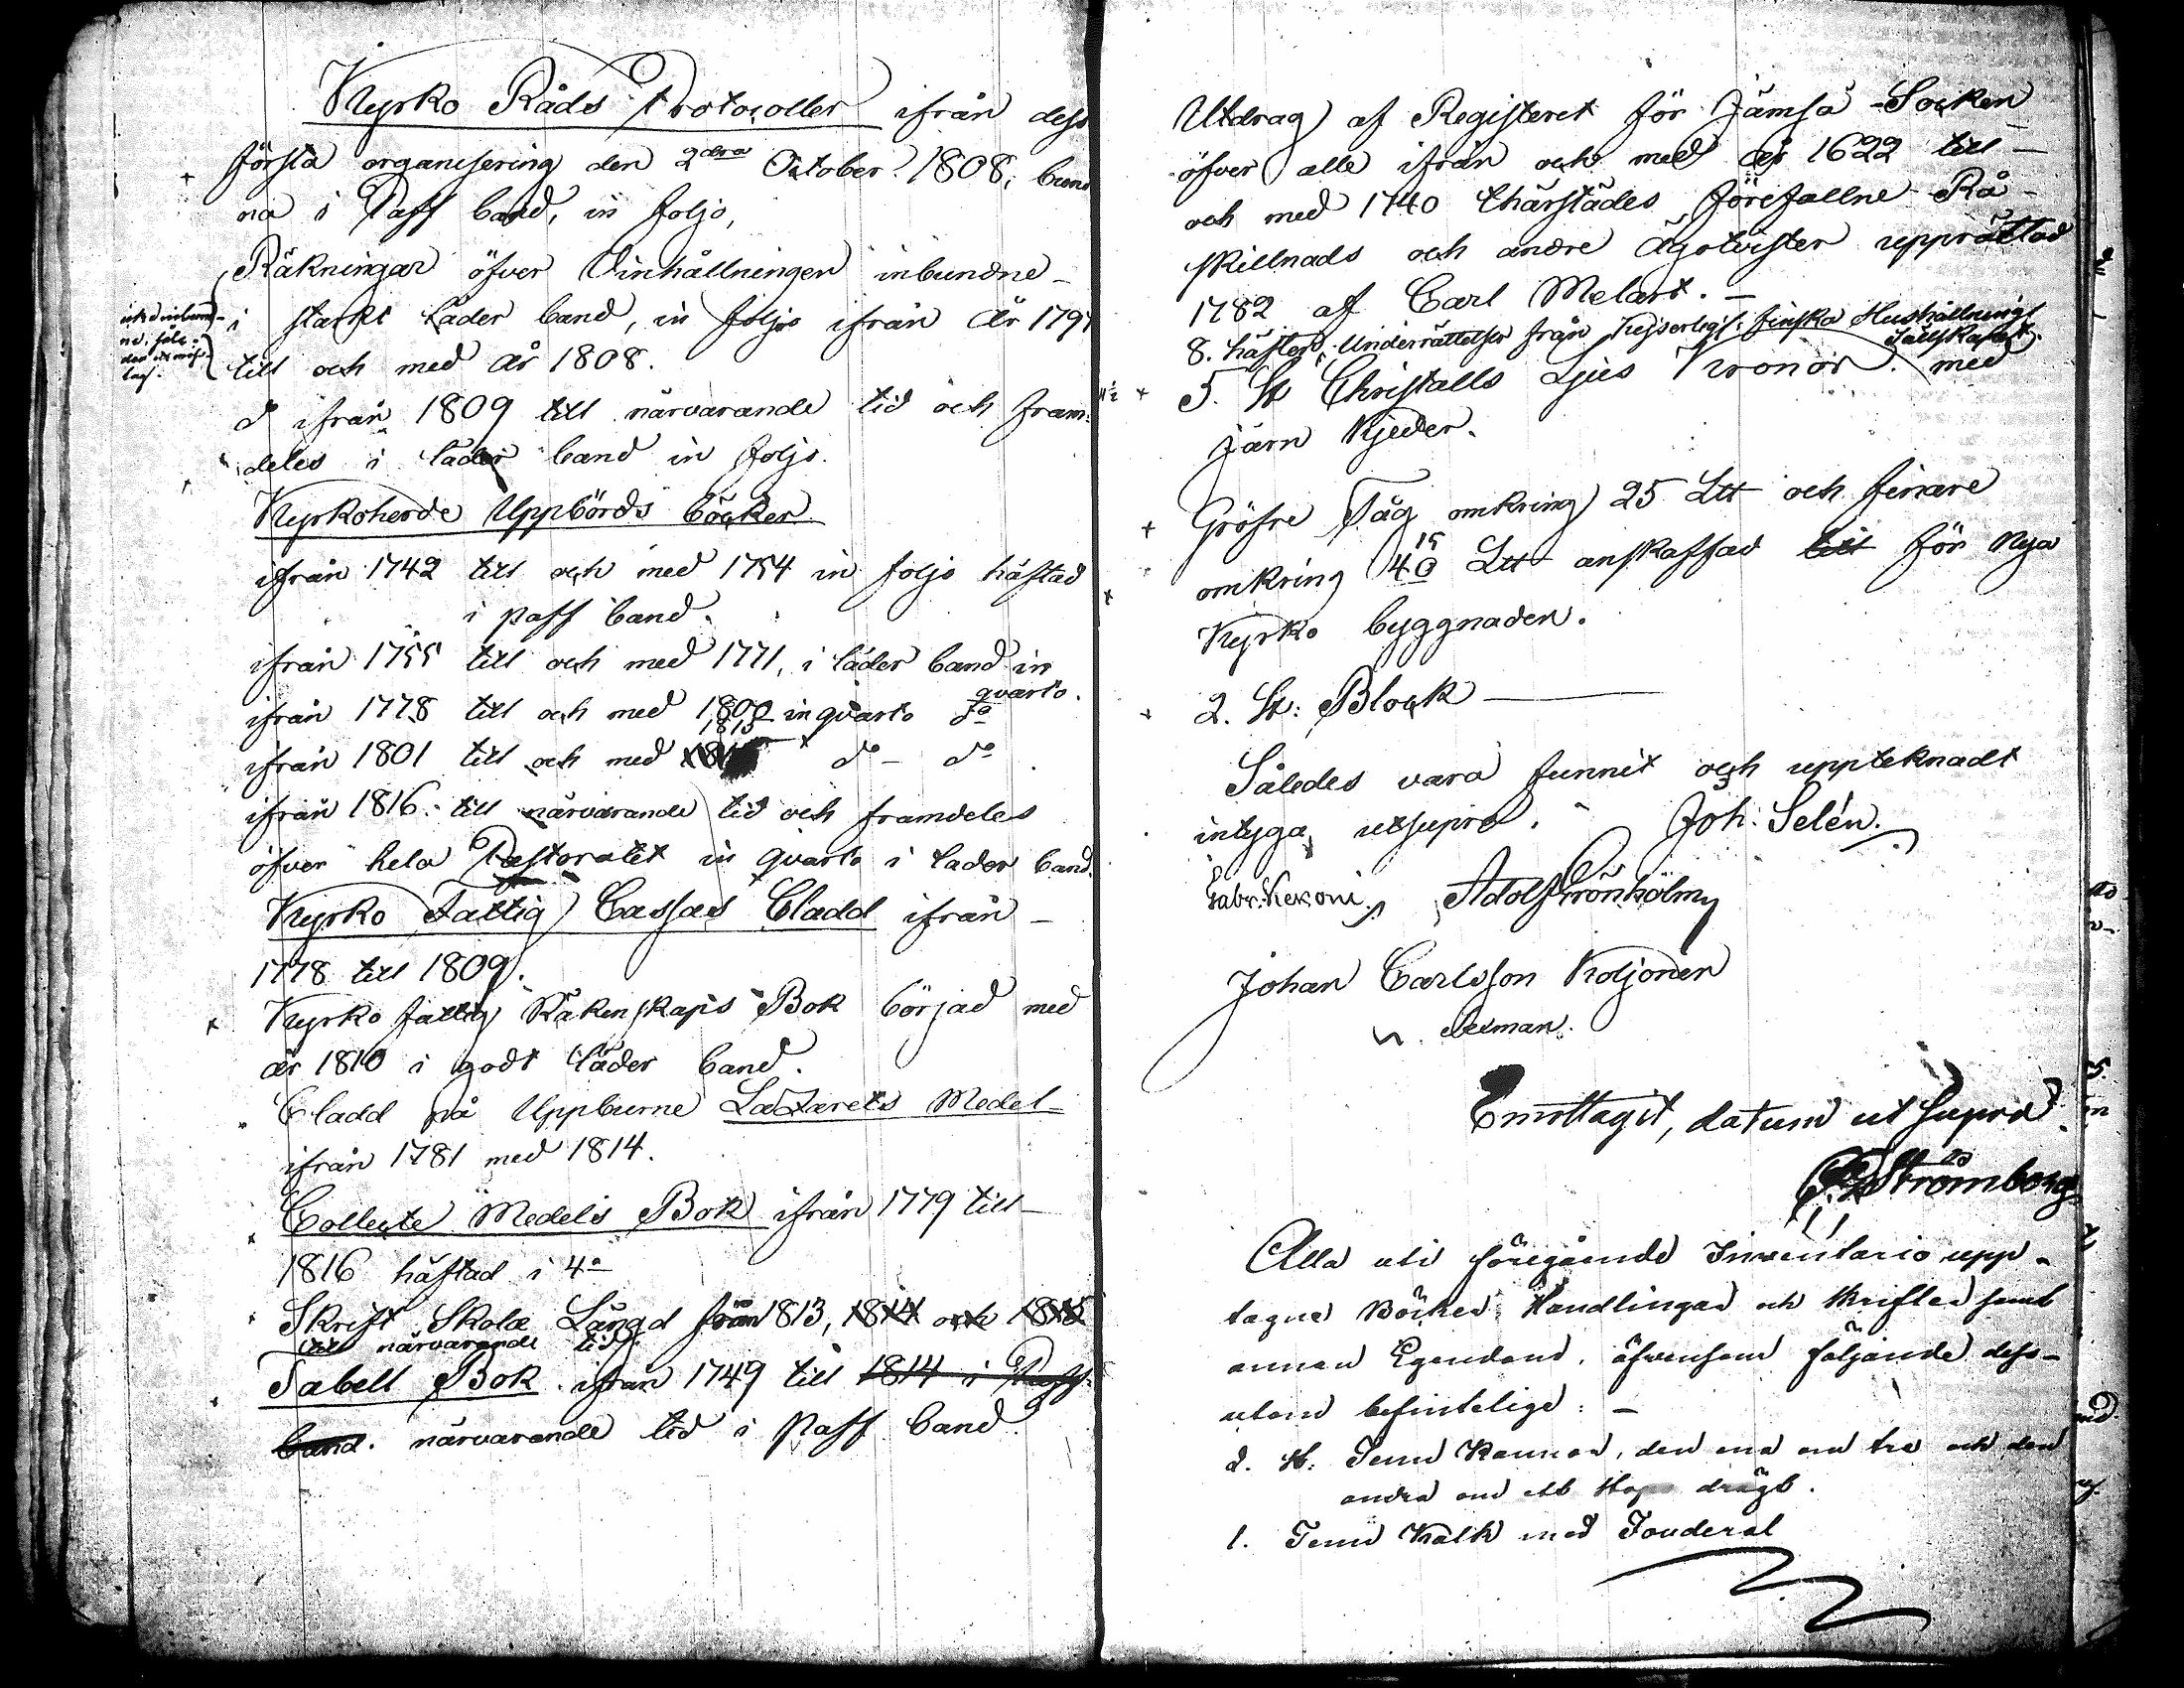 Kyrko Råds Protocoller ifrån dess
första organisering den 2dra October 1808, bund
na i Paff band, in folio,
Räkningar öfver Vinhållningen inbundne
i starkt läder band, in folio ifrån år 1797
till och med år 1808.
do ifrån 1809 till närvarande tid och fram-
deles i läder band in folio.
Kyrkoherde Uppbörds böcker
ifrån 1742 till och med 1754 in folio häftad
i paff band.
ifrån 1755 till och med 1771, i läder band in
quarto.
ifrån 1778 till och med 1800 in quarto do
1815
ifrån 1801 till och med do - do
ifrån 1816 till närvarande tid och framdeles
öfver hela Pastoratet in quarto i läder band.
Kyrko Fattig Cassas Cladd ifrån -
1778 till 1809.
Kyrko fattig Räkenskaps Bok börjad med
år 1810 i godt läder band.
Cladd på Uppburne Lazarets Medel
ifrån 1781 med 1814.
Collecte Medels Bok ifrån 1779 till
1816 häftad i 4o
Skrift Skole Längd från 1813, 1814 och 1815
till närvarande tid.
Tabell Bok ifrån 1749 till 1814 i Paff
band. närvarande tid i Paff band.
Utdrag af Registeret för Jämsä Socken
öfver alle ifrån och med år 1622 till -
och med 1740 thärstädes förefallne Rå-
skillnads och andre Ägotvister upprättad
1782 af Carl Melart. -
8. häften, Underrättelser från Kejserligt: finska Hushållnings
Sällskapet.
5. St Christalls Ljus Kronor. med
Järn Kjedier.
Gröfre Tåg omkring 25 Ltt och finare
15
omkring 40 Ltt anskaffad till för Nya
Kyrko byggnaden.
2. St: Block
Således vara funnit och uppteknadt
intyga utsupra. Joh: Selén.
Gabr. Kexoni. Adolf Grönholm
Johan Carlsson Koljonen
Emottagit, datum ut supra.
Strömborg
Alla uti föregående Inventario upp-
tagna Böcker, Handlingar och Skrifter samt
annan Egendom, äfvensom följande dess-
utom befintelige: -
2. st: Tenn Kannor, den ena om tre och den
andra om ett Stop drägt.
1. Tenn Kalk med Fouderal